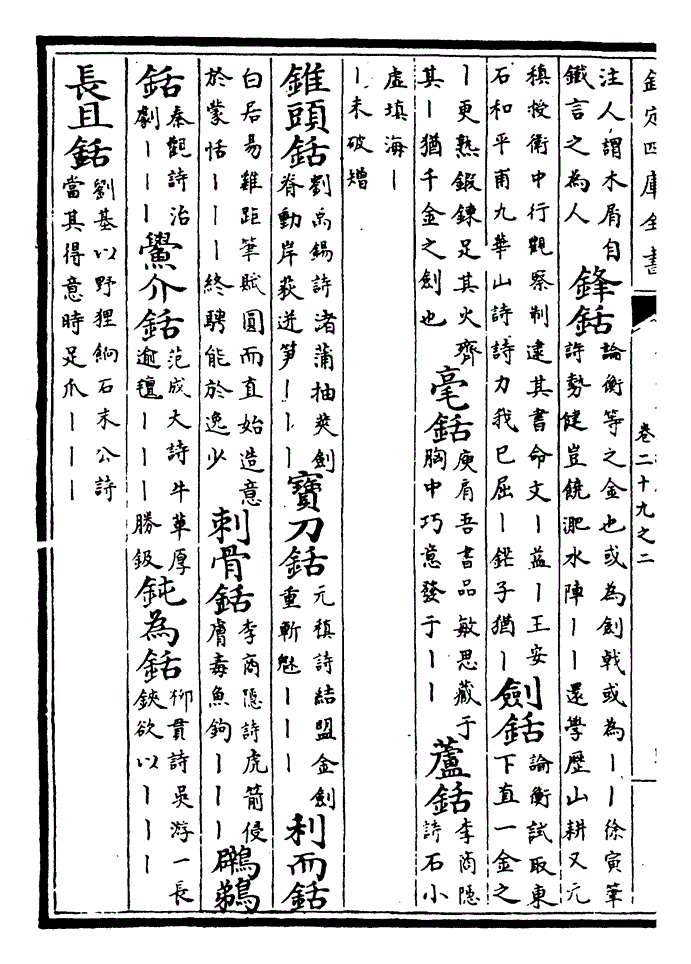 欽定四庫全書 卷二十九之二
注人謂木屑自鐵言之為人 鋒銛 論衡等之金也或為劍戟或為丨丨徐寅筆詩勢健豈饒淝水陣丨丨還學歷山耕又元
稹授衛中行觀察制逮其書命文丨益丨王安石和平甫九華山詩詩力我已屈丨鋩子猶丨 劍銛 論衡試取東下直一金之
丨更熟鍛鍊足其火齊其丨猶千金之劍也 毫銛 庾肩吾書品敏思藏于胸中巧意發于丨丨 蘆銛 李商隱詩石小
虛填海丨丨未破矰
錐頭銛 劉禹錫詩渚蒲抽英劍脊動岸荻迸笋丨丨丨 寶刀銛 元稹詩結盟金劍重斬魅丨丨丨 利而銛
白居易雞距筆賦圓而直始造意於蒙恬丨丨丨終騁能於逸少 刺骨銛 李商隱詩虎箭侵膚毒魚鉤丨丨丨 鸊鵜
銛 秦觀詩治劇丨丨丨 鱟介銛 范成大詩牛革厚逾氊丨丨丨勝鈒 鈍為銛 柳貫詩吳游一長鋏欲以丨丨丨
長且銛 劉基以野狸餉石末公詩當其得意時足爪丨丨丨